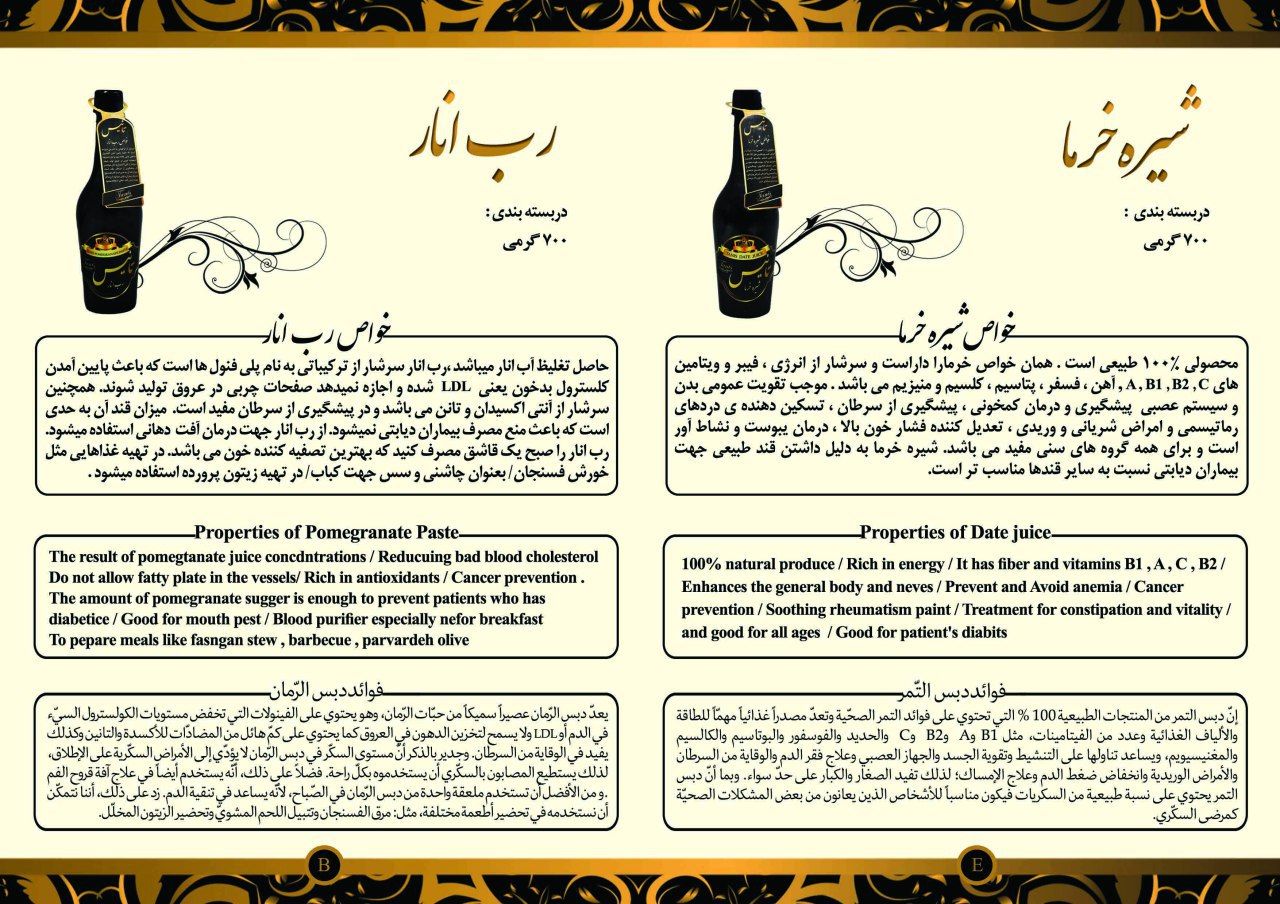 شیره خرما
دربسته بندی :
۷۰۰ گرمی
خواص شیره خرما
محصولی ۱۰۰٪ طبیعی است . همان خواص خرمارا داراست و سرشار از انرژی ، فیبر و ویتامین
های A , B1 , B2 , C , آهن ، فسفر ، پتاسیم ، کلسیم و منیزیم می باشد . موجب تقویت عمومی بدن
و سیستم عصبی پیشگیری و درمان کمخونی ، پیشگیری از سرطان ، تسکین دهنده ی دردهای
رماتیسمی و امراض شریانی و وریدی ، تعدیل کننده فشار خون بالا ، درمان یبوست و نشاط آور
است و برای همه گروه های سنی مفید می باشد. شیره خرما به دلیل داشتن قند طبیعی جهت
بیماران دیابتی نسبت به سایر قندها مناسب تر است.
Properties of Date juice
100% natural produce / Rich in energy / It has fiber and vitamins B1 , A , C , B2 /
Enhances the general body and neves / Prevent and Avoid anemia / Cancer
prevention / Soothing rheumatism paint / Treatment for constipation and vitality /
and good for all ages / Good for patient's diabits
فوائددبس التّمر
إنّ دبس التمر من المنتجات الطبيعية 100 % التي تحتوي على فوائد التمر الصحّية وتعدّ مصدراً غذائياً مهمّاً للطاقة
والألياف الغذائية وعدد من الفيتامينات، مثل B1 وA وB2 وC والحديد والفوسفور والبوتاسيم والكالسيم
والمغنيسيويم، ويساعد تناولها على التنشيط وتقوية الجسد والجهاز العصبي وعلاج فقر الدم والوقاية من السرطان
والأمراض الوريدية وانخفاض ضغط الدم وعلاج الإمساك؛ لذلك تفيد الصغار والكبار على حدّ سواء. وبما أنّ دبس
التمر يحتوي على نسبة طبيعية من السكريات فيكون مناسباً للأشخاص الذين يعانون من بعض المشكلات الصحيّة
كمرضى السكّري.
E
رب انار
دربسته بندی :
۷۰۰ گرمی
خواص رب انار
حاصل تغلیظ آب انار میباشد ،رب انار سرشار از ترکیباتی به نام پلی فنول ها است که باعث پایین آمدن
کلسترول بدخون یعنی LDL شده و اجازه نمیدهد صفحات چربی در عروق تولید شوند. همچنین
سرشار از آنتی اکسیدان و تانن می باشد و در پیشگیری از سرطان مفید است. میزان قند آن به حدی
است که باعث منع مصرف بیماران دیابتی نمیشود. از رب انار جهت درمان آفت دهانی استفاده میشود.
رب انار را صبح یک قاشق مصرف کنید که بهترین تصفیه کننده خون می باشد. در تهیه غذاهایی مثل
خورش فسنجان/ بعنوان چاشنی و سس جهت کباب/ در تهیه زیتون پرورده استفاده میشود .
Properties of Pomegranate Paste
The result of pomegtanate juice concdntrations / Reducuing bad blood cholesterol
Do not allow fatty plate in the vessels/ Rich in antioxidants / Cancer prevention .
The amount of pomegranate sugger is enough to prevent patients who has
diabetice / Good for mouth pest / Blood purifier especially nefor breakfast
To pepare meals like fasngan stew , barbecue , parvardeh olive
فوائددبس الرّمان
يعدّ دبس الرّمان عصيراً سميكاً من حبّات الرّمان، وهو يحتوي على الفينولات التي تخفض مستويات الكولسترول السيّء
في الدم أو LDL ولا يسمح لتخزين الدهون في العروق كما يحتوي على كمّ هائل من المضادّات للأكسدة والتانين وكذلك
يفيد في الوقاية من السرطان. وجدير بالذكر أنّ مستوى السكّر في دبس الرّمان لا يؤدّي إلى الأمراض السكّرية على الإطلاق،
لذلك يستطيع المصابون بالسكّري أن يستخدموه بكلّ راحة. فضلاً على ذلك، أنّه يستخدم أيضاً في علاج آفة قروح الفم
.و من الأفضل أن تستخدم ملعقة واحدة من دبس الرّمان في الصّباح، لأنّه يساعد في تنقية الدم. زد على ذلك، أننا نتمكّن
أن نستخدمه في تحضير أطعمة مختلفة، مثل: مرق الفسنجان وتتبيل اللحم المشويّ وتحضير الزيتون المخلّل.
B